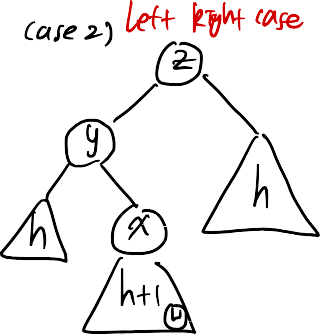 case 2) Left Right case
z
y
h
h
x
h+1
u